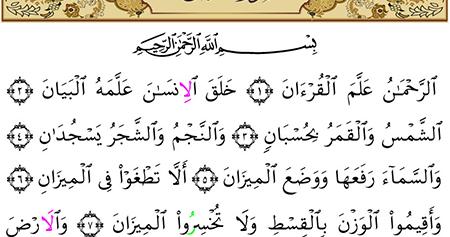 بِسْمِ اللَّهِ الرَّحْمَٰنِ الرَّحِيمِ
الرَّحْمَٰنُ عَلَّمَ الْقُرْءَانَ ﴿١﴾ خَلَقَ الْإِنسَٰنَ عَلَّمَهُ الْبَيَانَ ﴿٢﴾
الشَّمْسُ وَالْقَمَرُ بِحُسْبَانٍ ﴿٣﴾ وَالنَّجْمُ وَالشَّجَرُ يَسْجُدَانِ ﴿٤﴾
وَالسَّمَآءَ رَفَعَهَا وَوَضَعَ الْمِيزَانَ ﴿٥﴾ أَلَّا تَطْغَوْا۟ فِى الْمِيزَانِ ﴿٦﴾
وَأَقِيمُوا۟ الْوَزْنَ بِالْقِسْطِ وَلَا تُخْسِرُوا۟ الْمِيزَانَ ﴿٧﴾ وَالْأَرْضَ